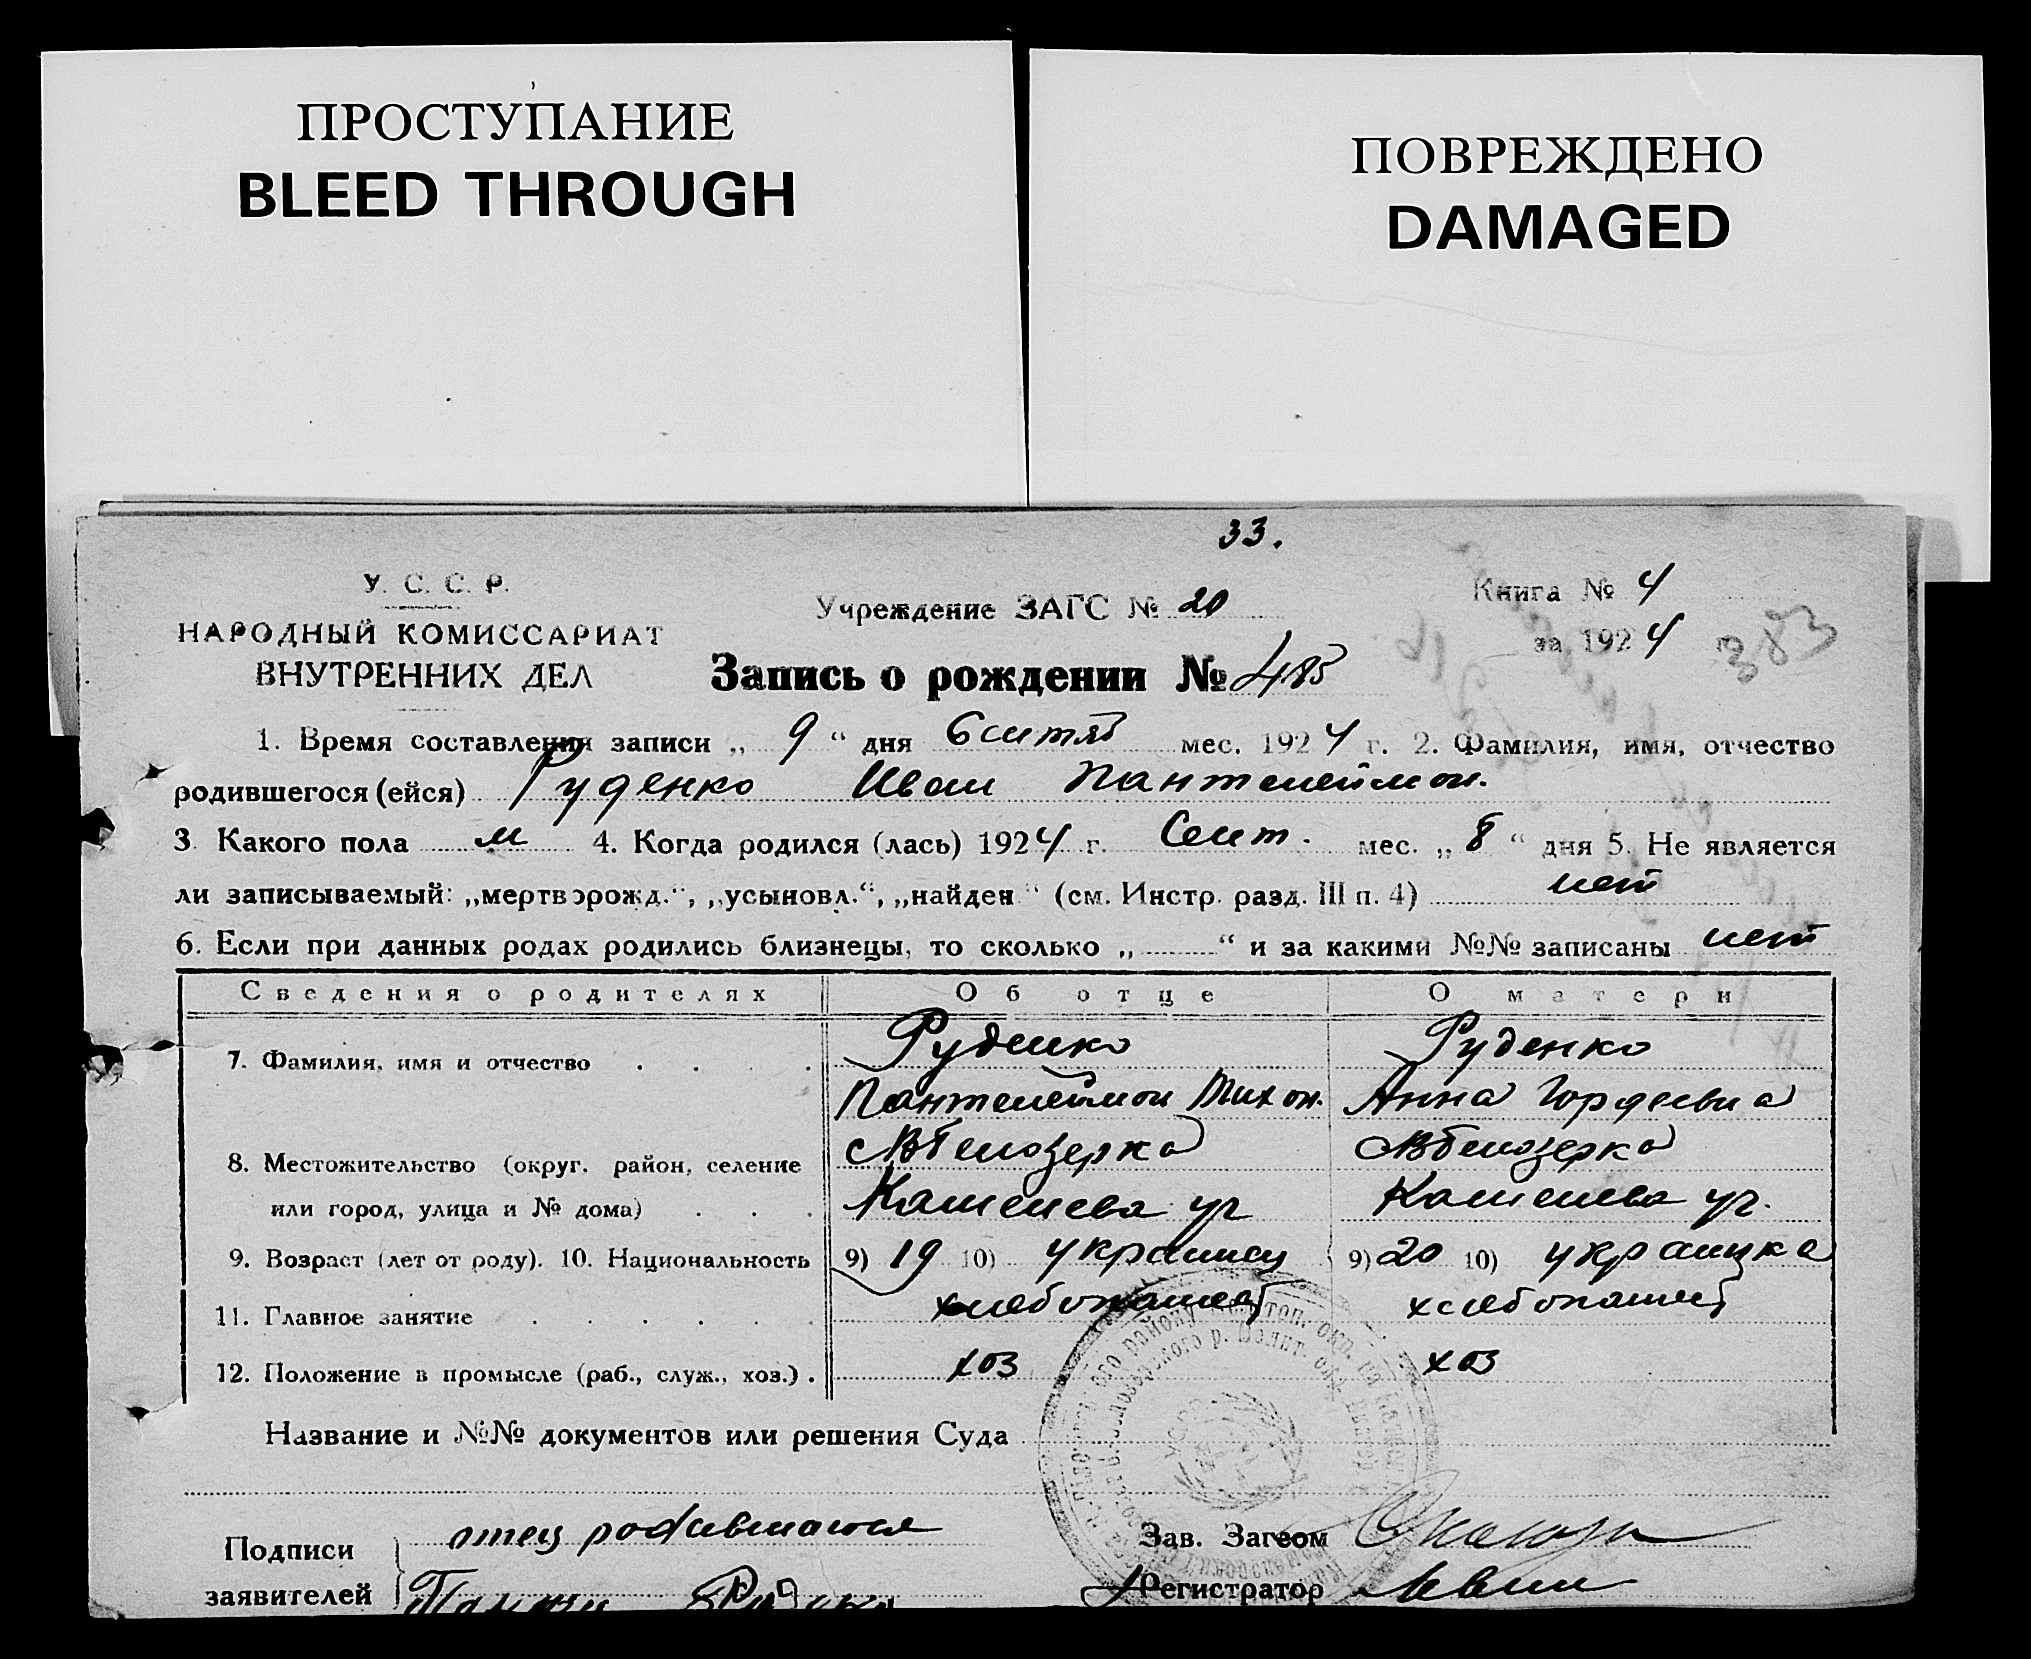 ПРОСТУПАНИЕ
BLEED THROUGH
ПОВРЕЖДЕНО
DAMAGED
33.
У. С. С. Р.
НАРОДНЫЙ КОМИССАРИАТ
ВНУТРЕННИХ ДЕЛ
Учреждение ЗАГС № 20
Книга № 4
за 1924 г.
383
Запись о рождении № 485
1. Время составления записи „ 9 “ дня Сентяб мес. 1924 г. 2. Фамилия, имя, отчество
родившегося (ейся) Руденко Иван Пантелеймон.
3. Какого пола м 4. Когда родился (лась) 1924 г. Сент. мес. „ 8 “ дня 5. Не является
ли записываемый: „мертворожд.“, „усыновл.“, „найден“ (см. Инстр. разд. III п. 4) нет
6. Если при данных родах родились близнецы, то сколько „ “ и за какими №№ записаны нет
Сведения о родителях Об отце О матери
7. Фамилия, имя и отчество Руденко Руденко
Пантелеймон Тихон. Анна Гордеевна
8. Местожительство (округ, район, селение ВБелозерка ВБелозерка
или город, улица и № дома) Каменева ул Каменева ул.
9. Возраст (лет от роду). 10. Национальность 9) 19 10) украинец 9) 20 10) украинка
11. Главное занятие хлебопашест хлебопашест
12. Положение в промысле (раб., служ., хоз.) хоз хоз
Название и №№ документов или решения Суда
Подписи отец родившагося Зав. Загсом
заявителей Регистратор Левин